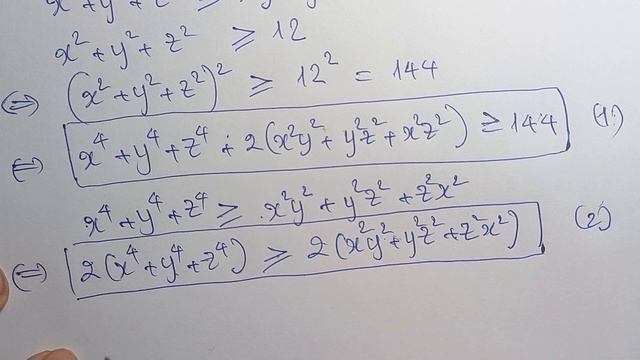 x² + y² + z² ≥ 12
⇔ (x² + y² + z²)² ≥ 12² = 144
⇔ x⁴ + y⁴ + z⁴ + 2(x²y² + y²z² + x²z²) ≥ 144 (1)
x⁴ + y⁴ + z⁴ ≥ x²y² + y²z² + z²x²
⇔ 2(x⁴ + y⁴ + z⁴) ≥ 2(x²y² + y²z² + z²x²) (2)